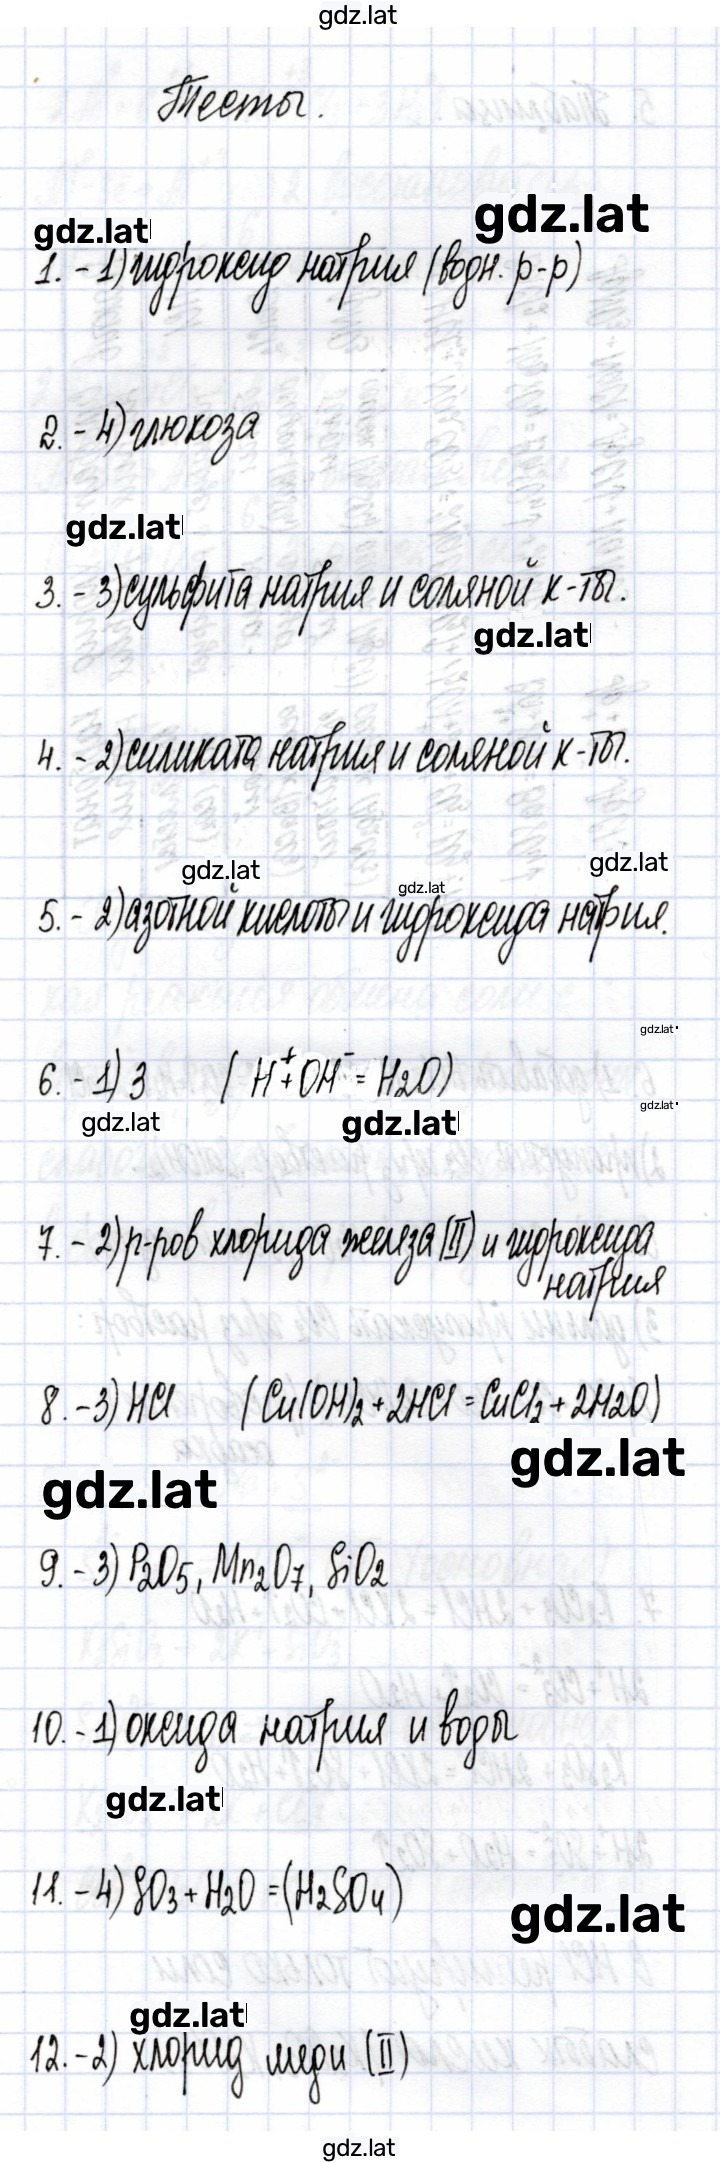 gdz.lat
Тесты.
gdz.lat
gdz.lat
1. - 1) гидроксид натрия (водн. р-р)
2. - 4) глюкоза
gdz.lat
3. - 3) сульфита натрия и соляной к-ты.
gdz.lat
4. - 2) силиката натрия и соляной к-ты.
gdz.lat
gdz.lat
gdz.lat
5. - 2) азотной кислоты и гидроксида натрия.
gdz.lat
6. - 1) 3 ( H⁺ + OH⁻ = H₂O)
gdz.lat
gdz.lat
gdz.lat
7. - 2) р-ров хлорида железа (II) и гидроксида
натрия
8. - 3) HCl ( Cu(OH)₂ + 2HCl = CuCl₂ + 2H₂O)
gdz.lat
gdz.lat
9. - 3) P₂O₅, Mn₂O₇, SiO₂
10. - 1) оксида натрия и воды
gdz.lat
11. - 4) SO₃ + H₂O = (H₂SO₄)
gdz.lat
gdz.lat
12. - 2) хлорид меди (II)
gdz.lat